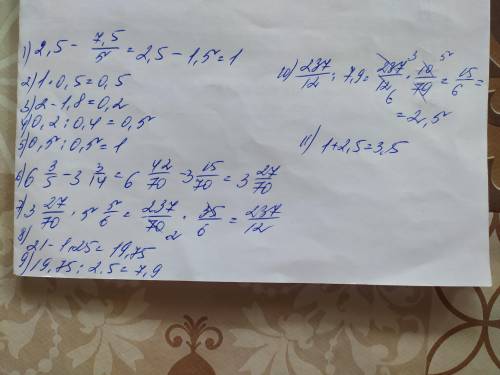 1) 2,5 - 7,5/5 = 2,5 - 1,5 = 1
2) 1 · 0,5 = 0,5
3) 2 - 1,8 = 0,2
4) 0,2 : 0,4 = 0,5
5) 0,5 : 0,5 = 1
6) 6 3/5 - 3 3/14 = 6 42/70 - 3 15/70 = 3 27/70
7) 3 27/70 · 5 5/6 = 237/70 2 · 35/6 = 237/12
8) 21 - 1,25 = 19,75
9) 19,75 : 2,5 = 7,9
10) 237/12 : 7,9 = 237 3/12 6 · 10 5/79 = 15/6 =
= 2,5
11) 1 + 2,5 = 3,5